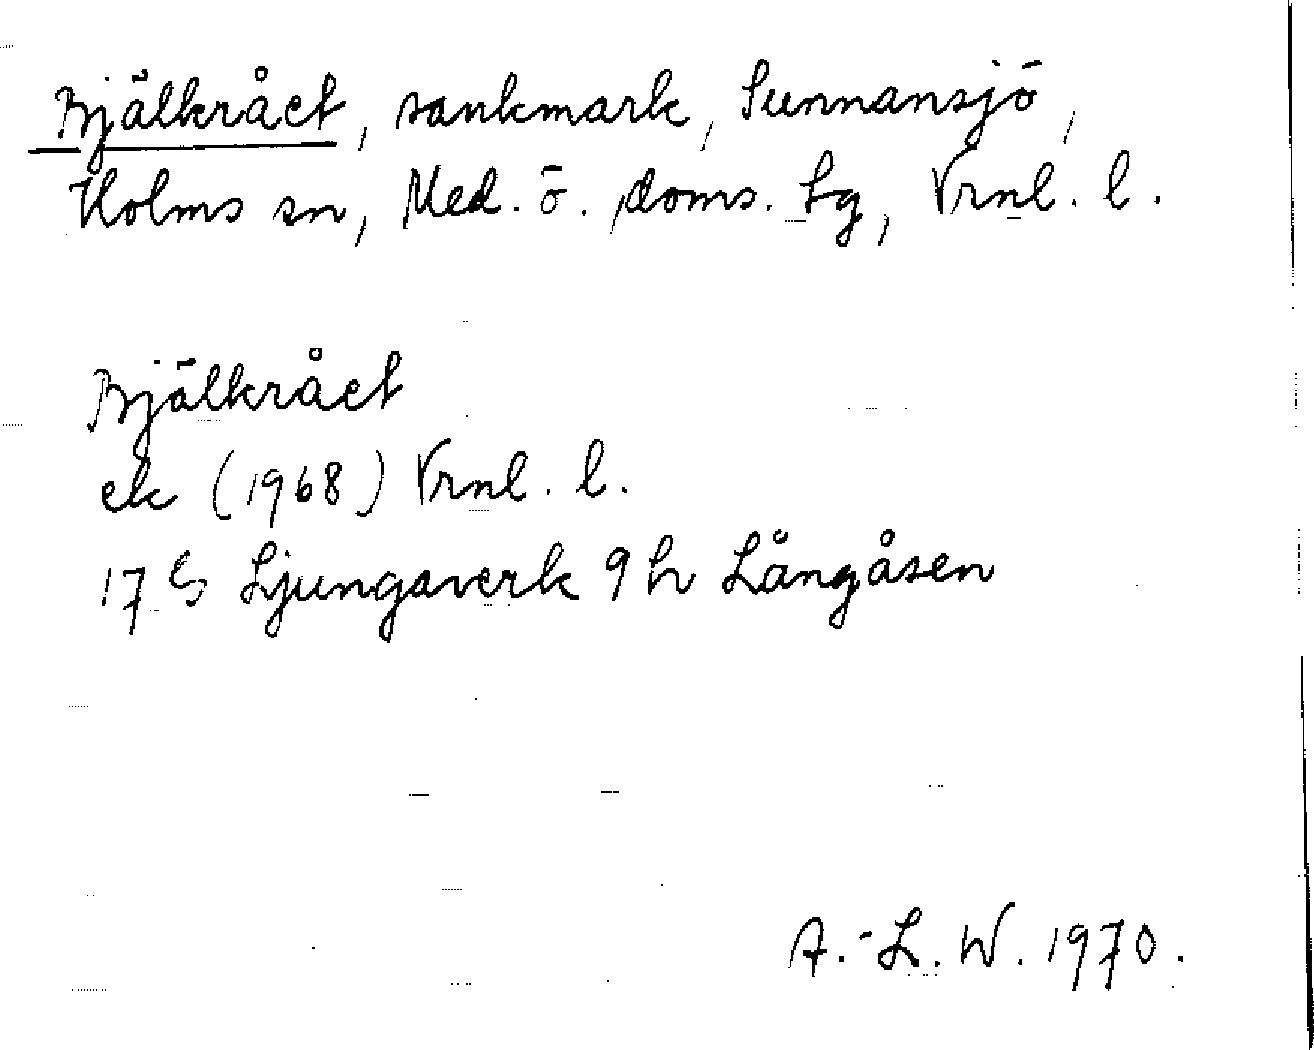 Bjälkrået, sankmark, Sunnansjö,
Holms sn, Med. ö. doms. tg, Vrnl. l.
Bjälkrået
ek (1968) Vrnl. l.
17 G Ljungaverk 9 h Långåsen
A.-L. W. 1970.